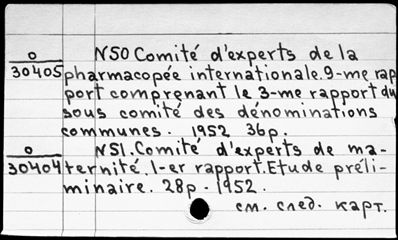 О N50 Comité d'experts de la
30405 pharmacopée internationale. 9-me rap
port comprenant le 3-me rapport du
sous comité des dénominations
communes. 1952 36p.
О N51. Comité d'experts de ma-
30404 ternité. 1-er rapport. Etude préli-
minaire. 28p. 1952.
см. след. карт.